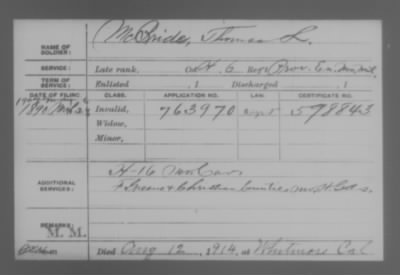 NAME OF SOLDIER: McBride, Thomas L.
SERVICE: Late rank, Co. H. 6 Reg't Prov. En. Mo. Mil.
TERM OF SERVICE: Enlisted , 1 Discharged , 1
DATE OF FILING. CLASS. APPLICATION NO. LAW. CERTIFICATE NO.
1890 Invalid, 763970 598843
Widow,
Minor,
ADDITIONAL SERVICES: H-16 Mo. Cav.
F Greene & Christian Counties Mo. H. Gds.
REMARKS: M. M.
Died Aug 12, 1914, at Whitmore Cal.